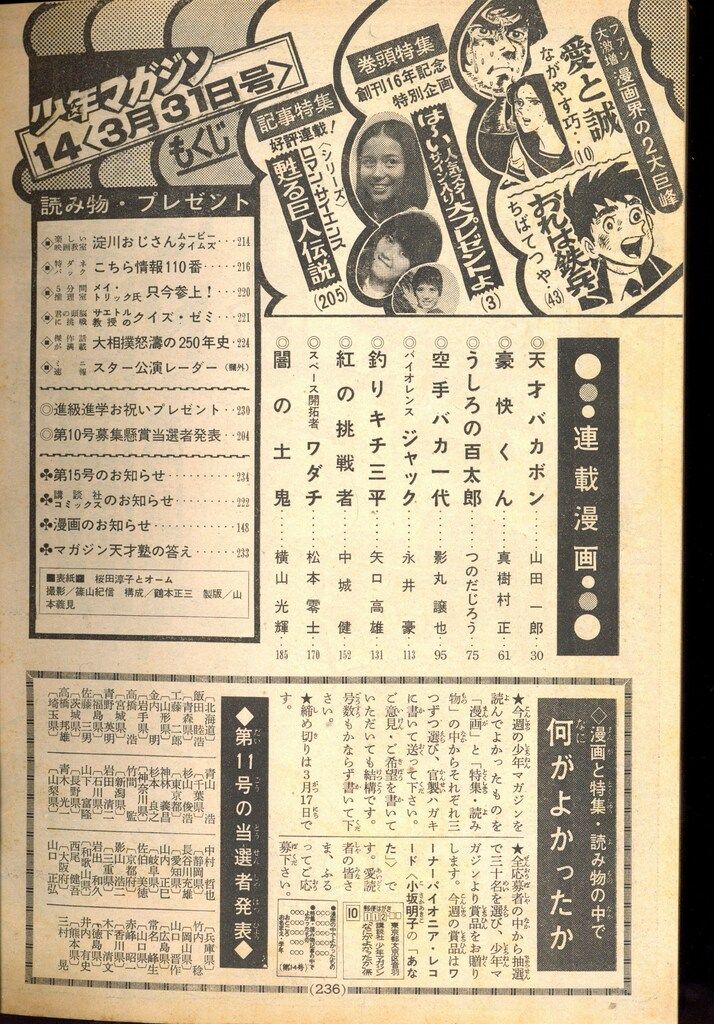 少年マガジン
14<3月31日号>
もくじ
ファン大激増
漫画界の2大巨峰
愛と誠
ながやす巧‥(10)
おれは鉄兵
ちばてつや‥(43)
巻頭特集
創刊16年記念
特別企画
は〜い!人気スターサイン入り大プレゼントよ
(3)
記事特集
好評連載!
〈シリーズ〉
ロマン・サイエンス
甦る巨人伝説
(205)
読み物・プレゼント
楽しい映画教室 淀川おじさんムービータイムズ‥214
特ダネパック こちら情報110番‥216
5分間推理室 メイ・トリック氏 只今参上!‥220
君の頭脳に挑戦 サエトル教授のクイズ・ゼミ‥221
傑作満載 大相撲怒濤の250年史‥224
スター公演レーダー(欄外)
◎進級進学お祝いプレゼント‥230
◎第10号募集懸賞当選者発表‥204
♣第15号のお知らせ‥‥‥234
♣講談社コミックスのお知らせ‥‥‥222
♣漫画のお知らせ‥‥‥148
♣マガジン天才塾の答え‥‥‥233
■表紙■ 桜田淳子とオーム
撮影/篠山紀信 構成/鶴本正三 製版/山
本義見
●連載漫画●
◎天才バカボン‥山田一郎‥30
◎豪快くん‥真樹村正‥61
◎うしろの百太郎‥つのだじろう‥75
◎空手バカ一代‥影丸譲也‥95
◎バイオレンスジャック‥永井豪‥113
◎釣りキチ三平‥矢口高雄‥131
◎紅の挑戦者‥中城健‥152
◎スペース開拓者ワダチ‥松本零士‥170
◎闇の土鬼‥横山光輝‥185
◇漫画と特集・読み物の中で
何がよかったか
★今週の少年マガジンを
読んでよかったものを
「漫画」と「特集・読み
物」の中からそれぞれ三
つずつ選び、官製ハガキ
に書いて送って下さい。
ご意見、ご希望を書いて
いただいても結構です。
号数もかならず書いて下
さい。
★締め切りは3月17日で
す。
★全応募者の中から抽選
で三十名を選び、少年マ
ガジンより賞品をお贈り
します。今週の賞品はワ
ーナーパイオニア・レコ
ード〈小坂明子の「あな
た」〉で
す。愛読
者の皆さ
ま、ふる
ってご応
募下さい。
郵便はがき
112
10
東京都文京区音羽
講談社 少年マガジン
(第14号)
◆第11号の当選者発表◆
〔北海道〕
飯田睦浩
〔青森県〕
工藤二郎
〔山形県〕
金内明
〔岩手県〕
高橋浩
〔宮城県〕
青野英明
〔福島県〕
佐藤三男
〔茨城県〕
高橋邦雄
〔埼玉県〕
青山浩
〔千葉県〕
杉山俊浩
〔東京都〕
神林義昌
杉本良之
〔神奈川県〕
竹間監
〔新潟県〕
岩田清二
〔石川県〕
山中富隆
〔長野県〕
青木光一
〔山梨県〕
中村哲也
〔静岡県〕
長谷川充雄
〔愛知県〕
山内正巳
〔岐阜県〕
佐伯美徳
〔京都府〕
影山浩二
〔三重県〕
岩出和久
〔和歌山県〕
西尾健吾
〔大阪府〕
山口正弘
〔兵庫県〕
竹内稔
〔岡山県〕
山口晋作
〔広島県〕
常名峰生
〔山口県〕
赤峰昭一
〔香川県〕
木下清文
〔徳島県〕
井上有史
〔熊本県〕
三村晃
(236)